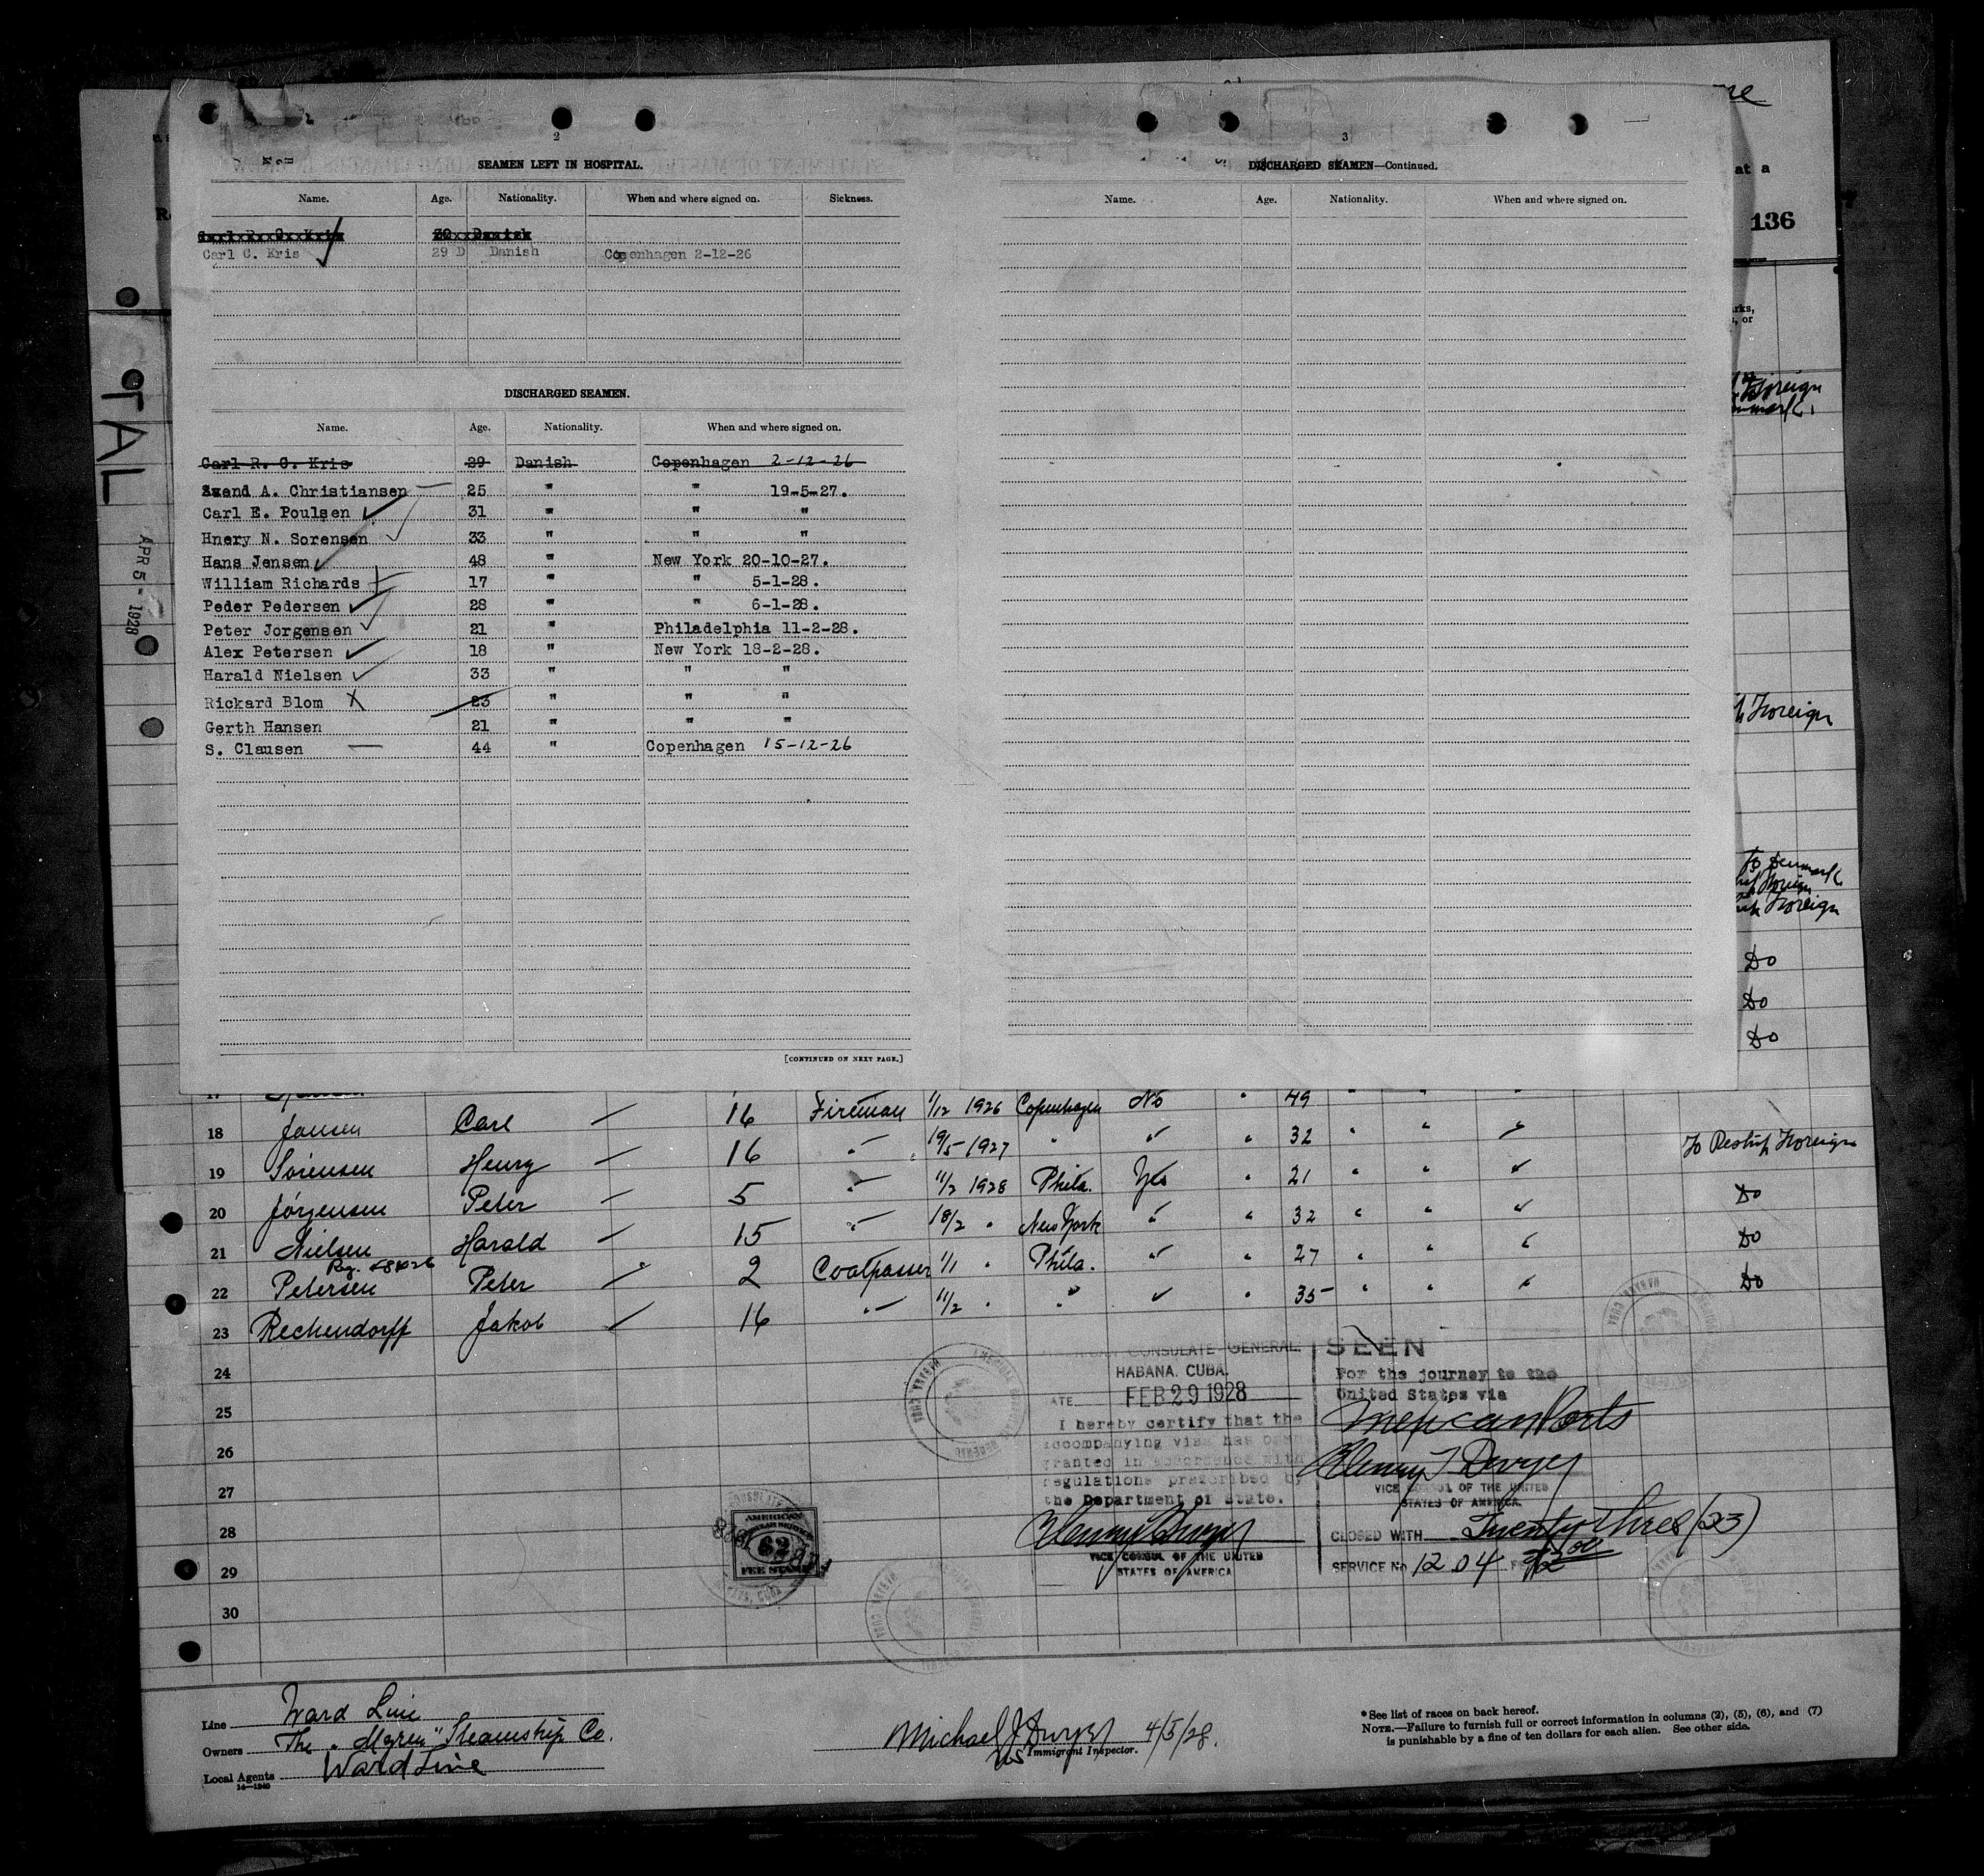 2
SEAMEN LEFT IN HOSPITAL.
Name. Age. Nationality. When and where signed on. Sickness.
Carl R. C. Kris 30 Danish
Carl C. Kris 29 D Danish Copenhagen 2-12-26
DISCHARGED SEAMEN.
Name. Age. Nationality. When and where signed on.
Carl R. C. Kris 29 Danish Copenhagen 2-12-26
Svend A. Christiansen 25 " " 19-5-27.
Carl E. Poulsen 31 " " "
Hnery N. Sorensen 33 " " "
Hans Jensen 48 " New York 20-10-27.
William Richards 17 " " 5-1-28.
Peder Pedersen 28 " " 6-1-28.
Peter Jorgensen 21 " Philadelphia 11-2-28.
Alex Petersen 18 " New York 18-2-28.
Harald Nielsen 33 " " "
Rickard Blom X 23 " " "
Gerth Hansen 21 " " "
S. Clausen 44 " Copenhagen 15-12-26
[CONTINUED ON NEXT PAGE.]
3
DISCHARGED SEAMEN—Continued.
Name. Age. Nationality. When and where signed on.
at a
136
rks,
, or
Foreign
Foreign
To Denmark
Foreign
Foreign
Do
Do
Do
TAL
APR 5 - 1928
17
18 Jansen Carl 16 Fireman 1/12 1926 Copenhagen No " 49 " " "
19 Sörensen Henry 16 " 19/5 1927 " " " 32 " " " To Reship Foreign
20 Jørgensen Peter 5 " 11/2 1928 Phila. Yes " 21 " " " Do
21 Nielsen Harald 15 " 18/2 " New York " " 32 " " " Do
22 Petersen Peter 2 Coalpasser 1/1 " Phila. " " 27 " " " Do
23 Rechendorff Jakob 16 " 11/2 " " " " 35 " " "
24
25
26
27
28
29
30
CONSULATE GENERAL
HABANA, CUBA.
ATE FEB 29 1928
I hereby certify that the
accompanying visa has been
granted in accordance with
regulations prescribed by
the Department of State.
VICE CONSUL OF THE UNITED
STATES OF AMERICA
SEEN
For the journey to the
United States via
Mexican Ports
VICE CONSUL OF THE UNITED
STATES OF AMERICA.
CLOSED WITH Twenty three (23)
SERVICE No 1204
AMERICAN
CONSULAR SERVICE
$2
FEE STAMP
Line Ward Line
Owners The "Mgren" Steamship Co.
Local Agents Ward Line
14—1240
Michael J. Dwyer 4/5/28.
US Immigrant Inspector.
*See list of races on back hereof.
NOTE.—Failure to furnish full or correct information in columns (2), (5), (6), and (7)
is punishable by a fine of ten dollars for each alien. See other side.